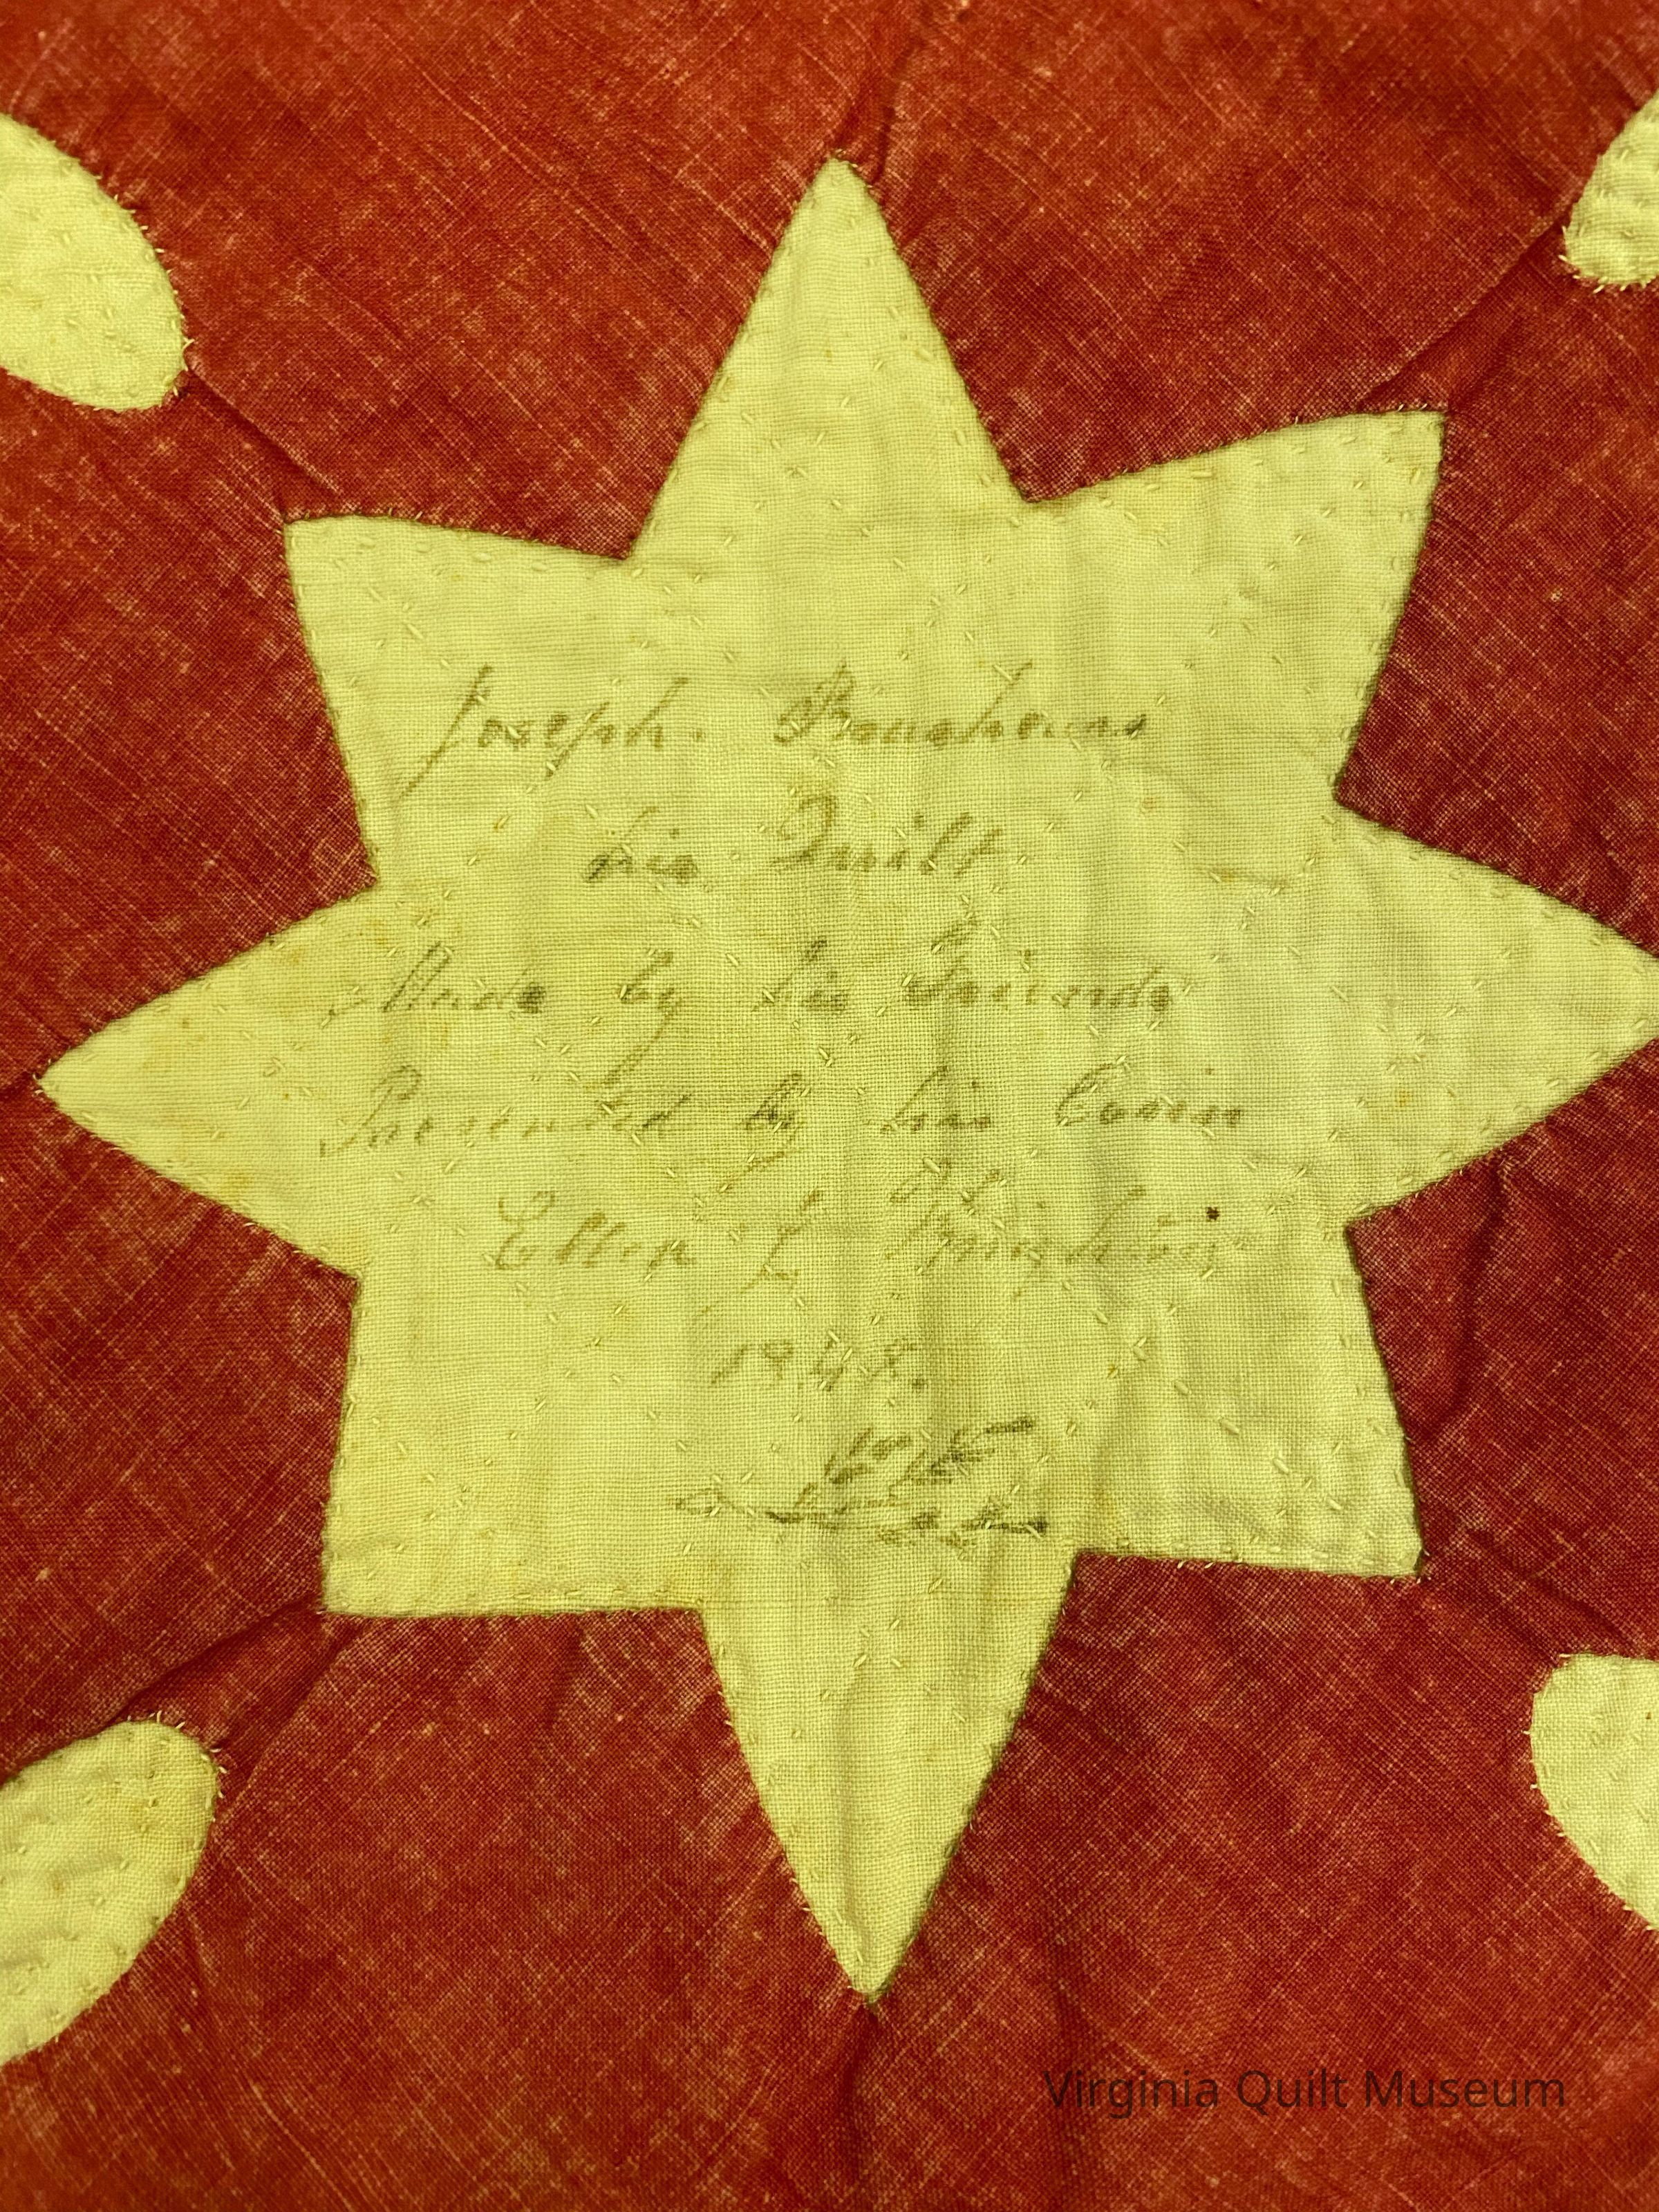 Joseph.
his Quilt
Made by his Friends
Presented by his Cousin
Ellen J
Virginia Quilt Museum